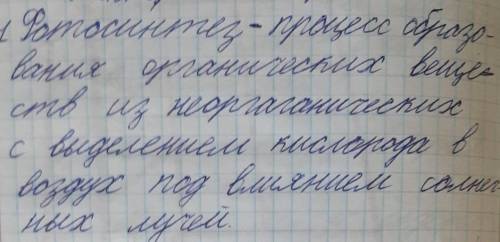 1 Фотосинтез - процесс образо-
вания органических веще-
ств из неоргаганических
с выделением кислорода в
воздух под влиянием солнеч
ных лучей.